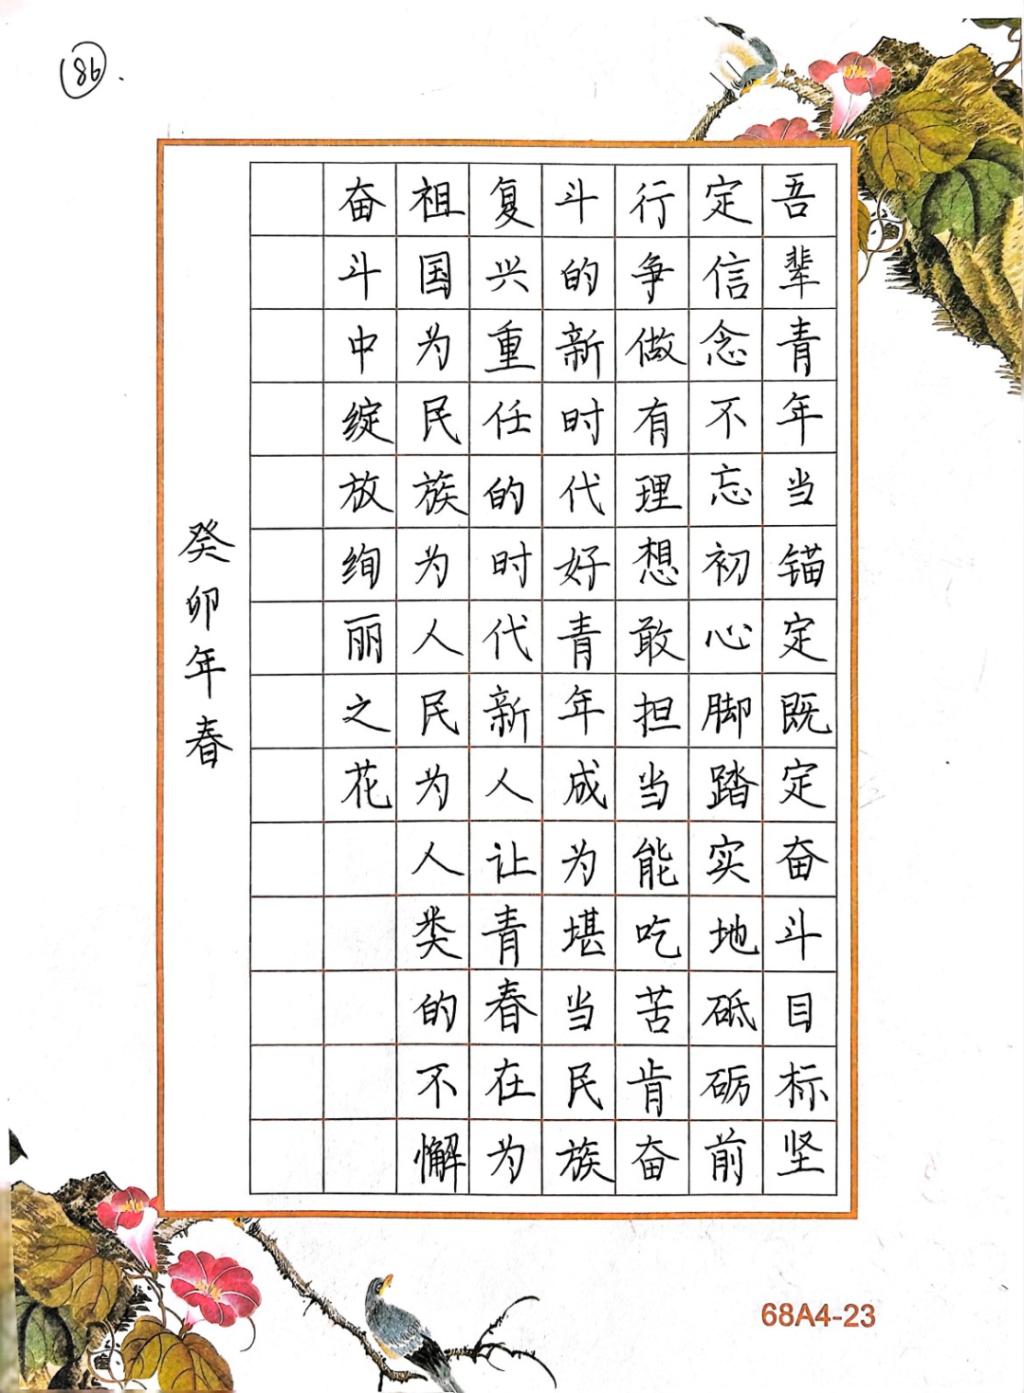 186.
吾辈青年当锚定既定奋斗目标坚
定信念不忘初心脚踏实地砥砺前
行争做有理想敢担当能吃苦肯奋
斗的新时代好青年成为堪当民族
复兴重任的时代新人让青春在为
祖国为民族为人民为人类的不懈
奋斗中绽放绚丽之花
癸卯年春
68A4-23